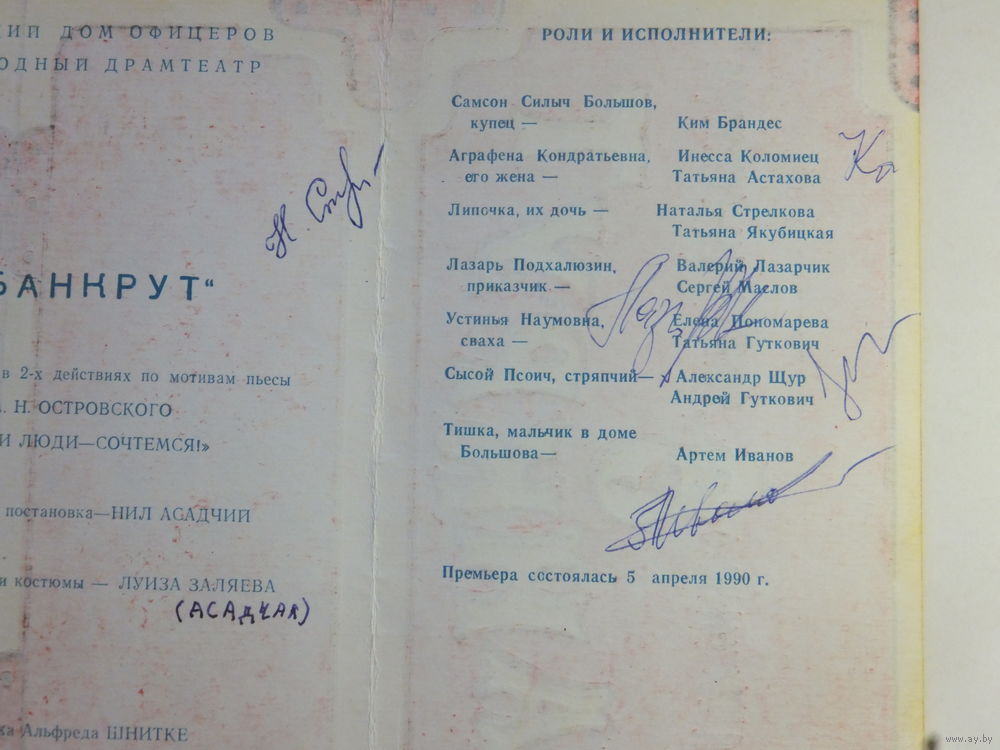 ДОМ ОФИЦЕРОВ
ДРАМТЕАТР
Н. Стр
БАНКРУТ“
в 2-х действиях по мотивам пьесы
Н. ОСТРОВСКОГО
И ЛЮДИ—СОЧТЕМСЯ!»
постановка—НИЛ АСАДЧИЙ
и костюмы — ЛУИЗА ЗАЛЯЕВА
(АСАДЧАЯ)
Альфреда ШНИТКЕ
РОЛИ И ИСПОЛНИТЕЛИ:
Самсон Силыч Большов,
купец — Ким Брандес
Аграфена Кондратьевна, Инесса Коломиец
его жена — Татьяна Астахова
Липочка, их дочь — Наталья Стрелкова
Татьяна Якубицкая
Лазарь Подхалюзин, Валерий Лазарчик
приказчик — Сергей Маслов
Устинья Наумовна, Елена Пономарева
сваха — Татьяна Гуткович
Сысой Псоич, стряпчий— Александр Щур
Андрей Гуткович
Тишка, мальчик в доме
Большова— Артем Иванов
Премьера состоялась 5 апреля 1990 г.
www.ay.by